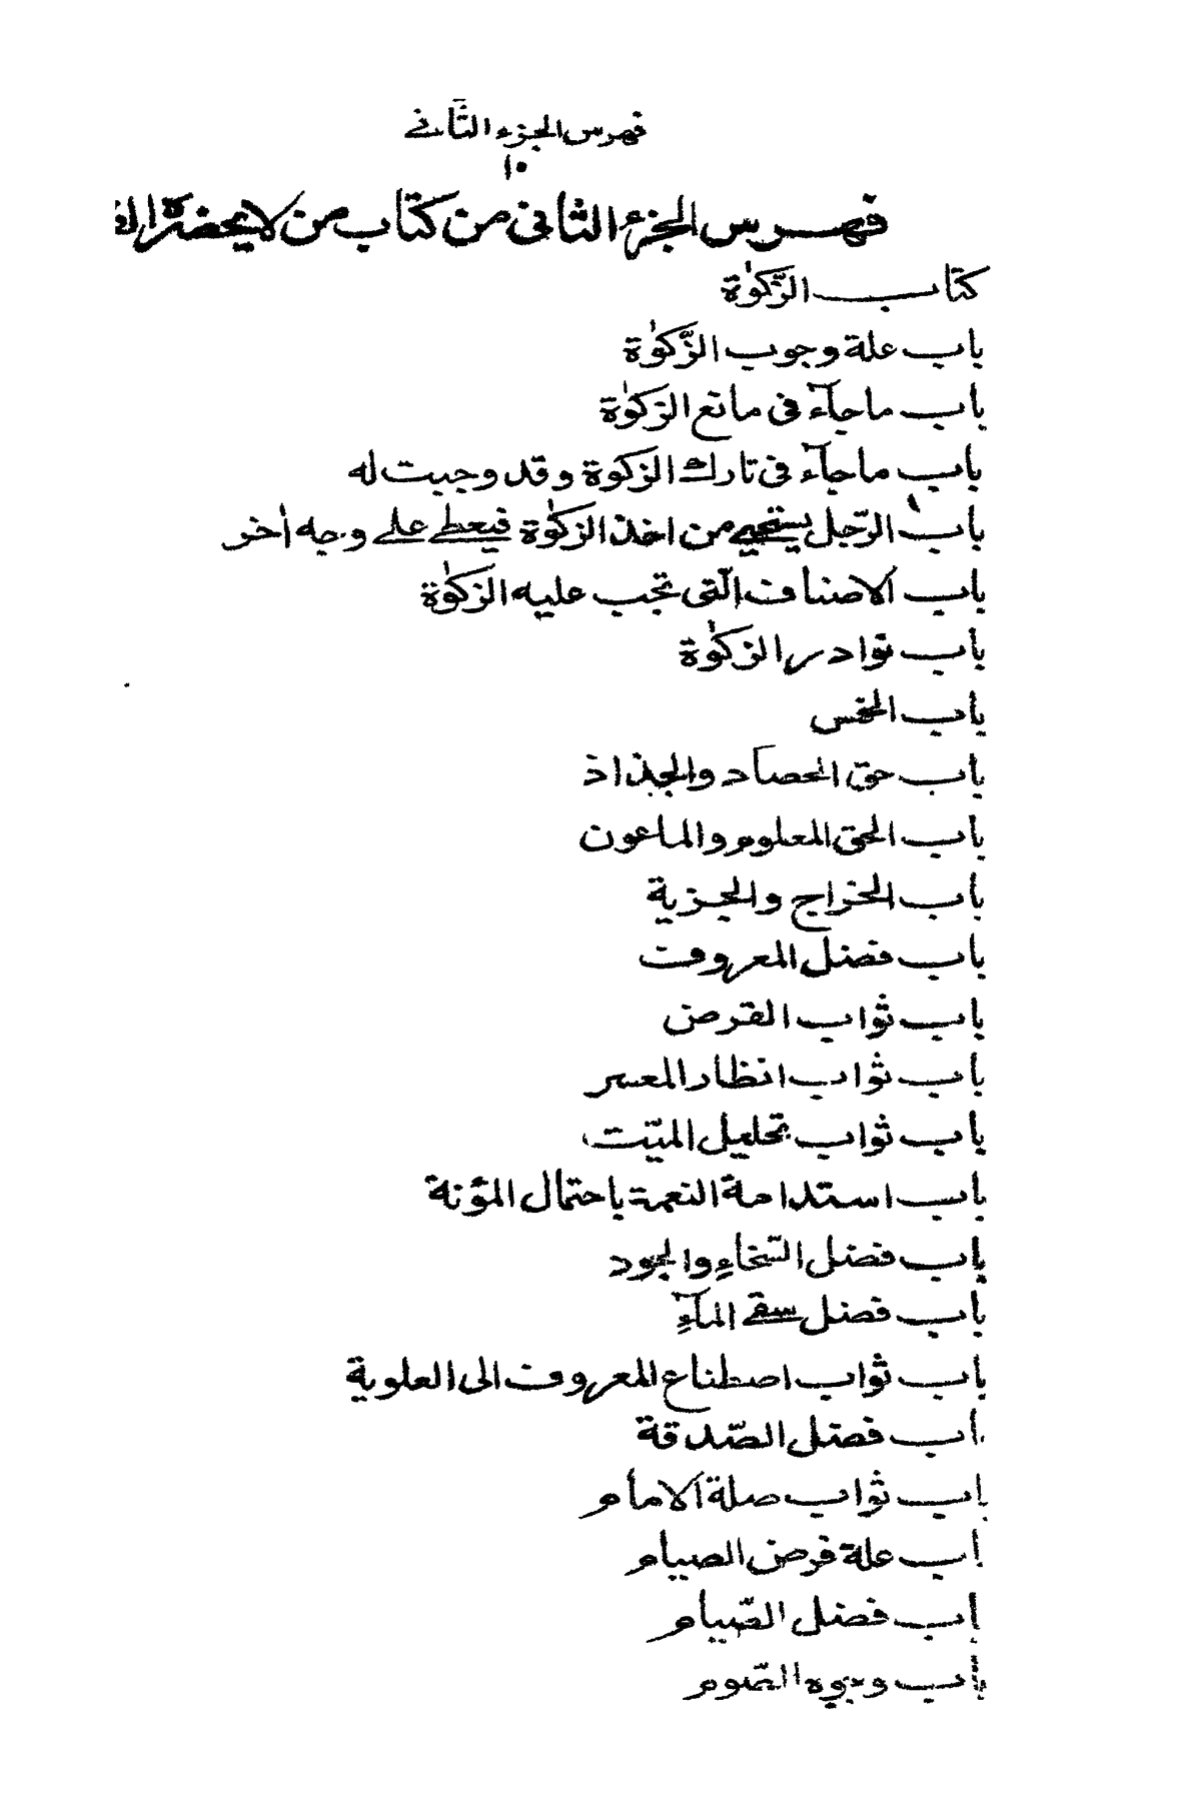 فهرس الجزء الثانے
١٠
فهرس الجزء الثانى من كتاب من لا يحضره
كتاب الزَّكوٰة
باب علة وجوب الزَّكوٰة
باب ما جآء فى مانع الزكوٰة
باب ما جآء فى تارك الزكوة وقد وجبت له
باب الرّجل يستحيے من اخذ الزكوٰة فيعطے علے وجه أخر
باب الاصناف الّتى تجب عليه الزكوٰة
باب نوادر الزكوٰة
باب الخمس
باب حق الحصاد والجذاذ
باب الحق المعلوم والماعون
باب الخراج والجزية
باب فضل المعروف
باب ثواب القرض
باب ثواب انظار المعسر
باب ثواب تحليل الميّت
باب استدامة النعمة باحتمال المؤنة
باب فضل السّخاءِ والجود
باب فضل سقے المآءِ
باب ثواب اصطناع المعروف الى العلوية
باب فضل الصّدقة
باب ثواب صلة الامام
باب علة فرض الصيام
باب فضل الصّيام
باب وجوه الصّوم